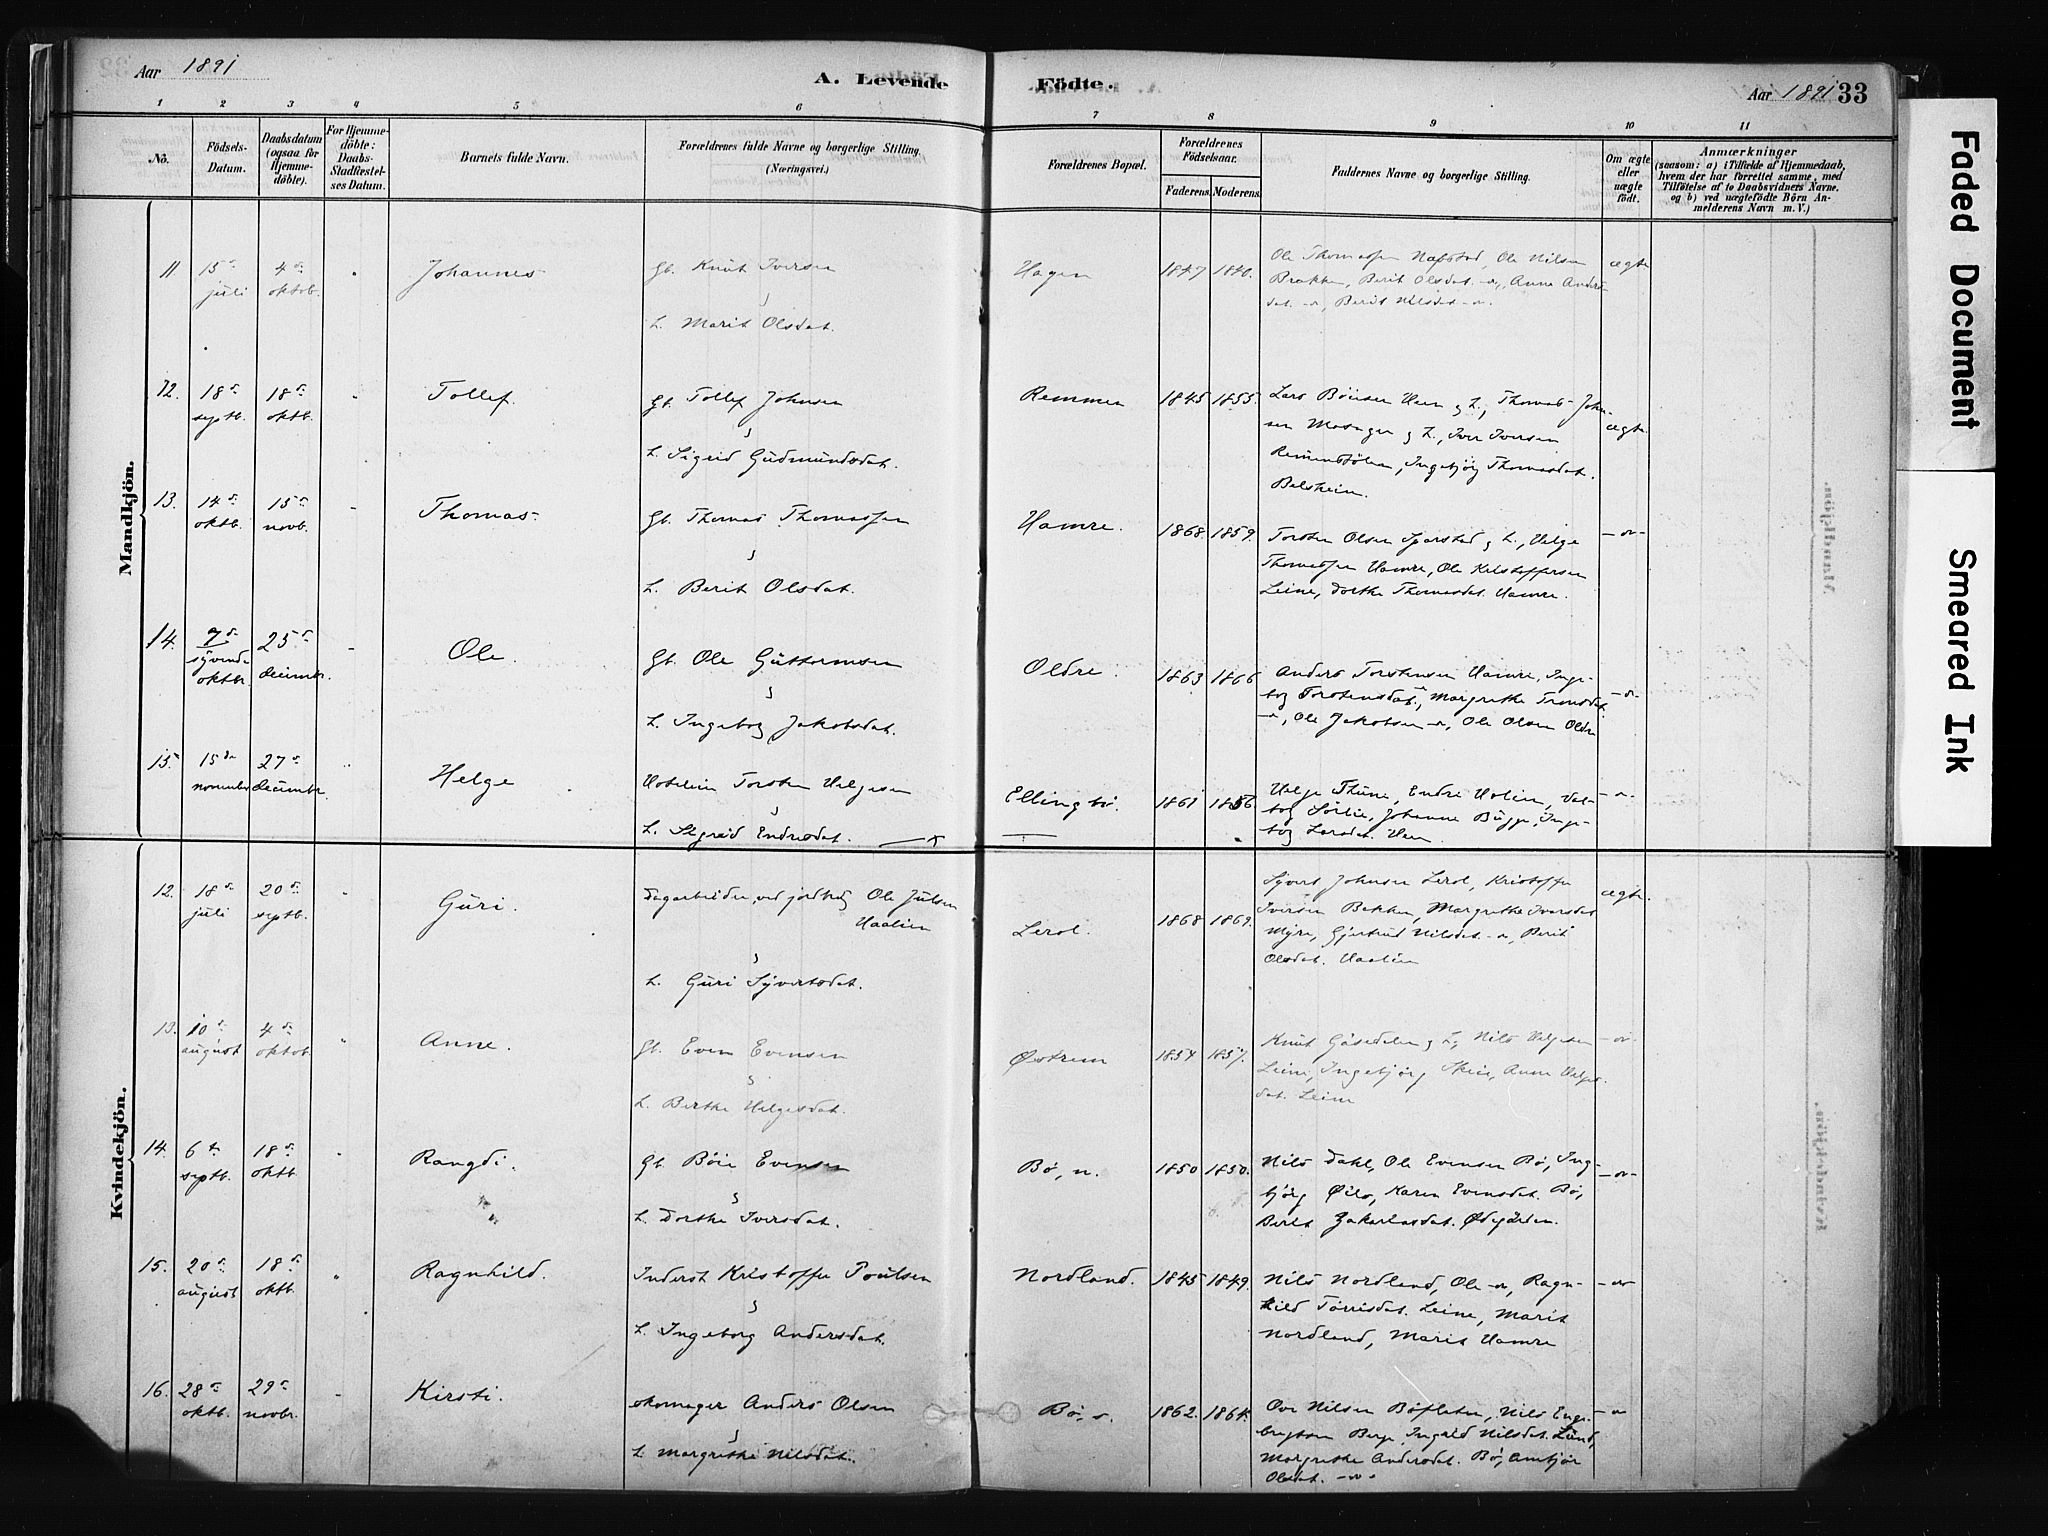 Aar 1891
A. Levende
Födte.
Aar 1891 33
1 2 3 4 5 6 7 8 9 10 11
No.
Födsels-
Datum.
Daabsdatum
(ogsaa for
Hjemme-
döbte).
For Hjemme-
döbte:
Daabs-
Stadfæstel-
ses Datum.
Barnets fulde Navn.
Forældrenes fulde Navne og borgerlige Stilling.
(Næringsvei.)
Forældrenes Bopæl.
Forældrenes
Födselsaar.
Faderens.
Moderens.
Faddernes Navne og borgerlige Stilling.
Om ægte
eller
uægte
födt.
Anmærkninger
(saasom: a) i Tilfælde af Hjemmedaab,
hvem der har forrettet samme, med
Tilföielse af to Daabsvidners Navne,
og b) ved uægtefödte Börn An-
melderens Navn m. V.)
Mandkjön.
11 15de juli 4de oktob. Johannes
Gb. Knut Iversen
H. Marit Olsdat.
Hagen 1847 1840.
Ole Thomassen Nafstad, Ole Nilsen
Brakken, Berit Olsdat. Anne Anders-
dat. Berit Nilsdat.
ægte
12. 18de septb. 18de oktb. Tollef.
Gb. Tollef Johnsen
H. Sigrid Gudmundsdat.
Remmen 1845 1855.
Lars Böiesen Hven g H., Thomas John-
sen g H., Iver Iversen
Ingebjörg Thomasdat.
Belsheim.
ægte
13. 14de oktb. 15de novb. Thomas.
Gb. Thomas Thomassen
H. Berit Olsdat.
Hamre. 1868. 1859.
Torsten Olsen g H., Helge
Thomassen Hamre, Ole Kristoffersen
Leine, Dorthe Thomasdat. Hamre.
14. 7de syvende oktbr. 25de decembr. Ole.
Gb. Ole Guttormsen
H. Ingebog Jakobsdat.
Oldre. 1863 1866
Anders Torstensen Hamre, Inge-
bog Torstensdat., Margrethe
Ole Jakobsen Ole Olsen Oldre
15. 15de november 27de decembr. Helge
Torsten Helgesen
H. Sigrid Endresdat.
Ellingbö. 1861 1856
Helge Thune, Endre Val-
bog Johanne Bugge, Inge-
bog Larsdat. Hven
Kvindekjön.
12. 18de juli 20de septb. Guri.
Dagarbeider ved jordbrug Ole Julsen
Haalien
H. Guri Syvertsdat.
Lerol. 1868 1869.
Syvert Johnsen Lerol, Kristoffer
Iversen Bakken, Margrethe Iversdat
Myre, Gjertrud Nilsdat. Berit
Olsdat. Haalien
ægte.
13. 10de august 4de oktob. Anne.
Gb. Even Evensen
H. Berthe Helgesdat.
Östrem 1854 1857.
Knut Gåsedelen g H., Nils Helgesen
Leine, Ingebjörg Skeie, Anne Helges-
dat. Leine
14. 6te septb. 18de oktb. Rangdi.
Gb. Böie Evensen
H. Dorthe Iversdat.
Bö, n. 1850 1850.
Nils Dahl, Ole Evensen Bö, Ing-
björg Öilo, Karen Evensdat. Bö,
Berit Zakariasdat. Ödegården.
15. 20de august 18de oktb. Ragnhild.
Inderst Kristoffer Poulsen
H. Ingeborg Andersdat.
Nordland. 1845 1849.
Nils Nordland, Ole Ragn-
hild Torrisdat. Leine, Marit
Nordland, Marit Hamre
16. 28de oktb. 29de novbr. Kirsti.
skomager Anders Olsen
H. Margrethe Nilsdat.
Bö, s. 1862. 1864.
Ove Nilsen Böfleten, Nils Enge-
bregtsen Berge, Ingrid Nilsdat. Lund,
Margrethe Andersdat. Bö, Ambjör
Olsdat.
Faded Document
Smeared Ink